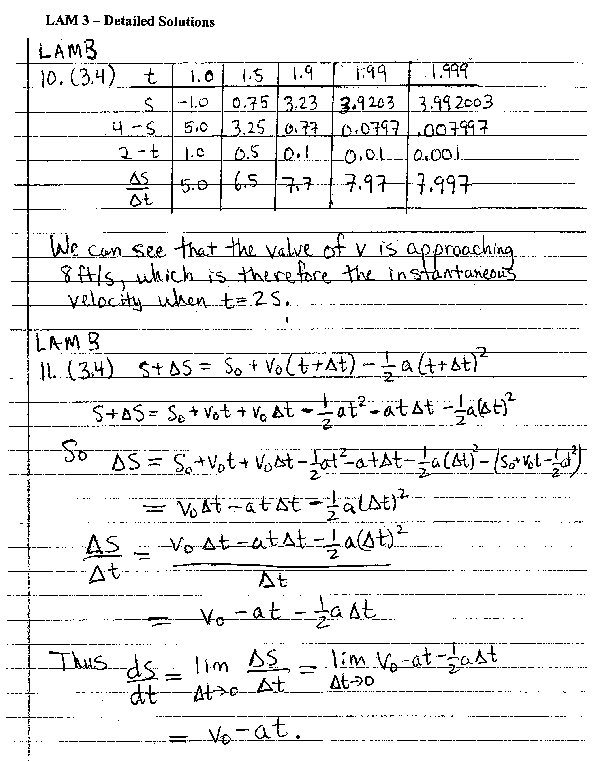 LAM 3 – Detailed Solutions
LAM 3
10. (3.4) t 1.0 1.5 1.9 1.99 1.999
S -1.0 0.75 3.23 3.9203 3.992003
4-S 5.0 3.25 0.77 0.0797 .007997
2-t 1.0 0.5 0.1 0.01 0.001
ΔS/Δt 5.0 6.5 7.7 7.97 7.997
We can see that the value of v is approaching
8 ft/s, which is therefore the instantaneous
velocity when t = 2 s.
LAM 3
11. (3.4) S+ΔS = S₀ + V₀(t+Δt) - ½ a(t+Δt)²
S+ΔS = S₀ + V₀t + V₀Δt - ½at² - atΔt - ½a(Δt)²
So ΔS = S₀+V₀t+V₀Δt-½at²-atΔt-½a(Δt)²-(S₀+V₀t-½at²)
= V₀Δt-atΔt-½a(Δt)²
ΔS/Δt = V₀Δt-atΔt-½a(Δt)² / Δt
= V₀-at-½aΔt
Thus ds/dt = lim Δt→0 ΔS/Δt = lim Δt→0 V₀-at-½aΔt
= V₀-at.